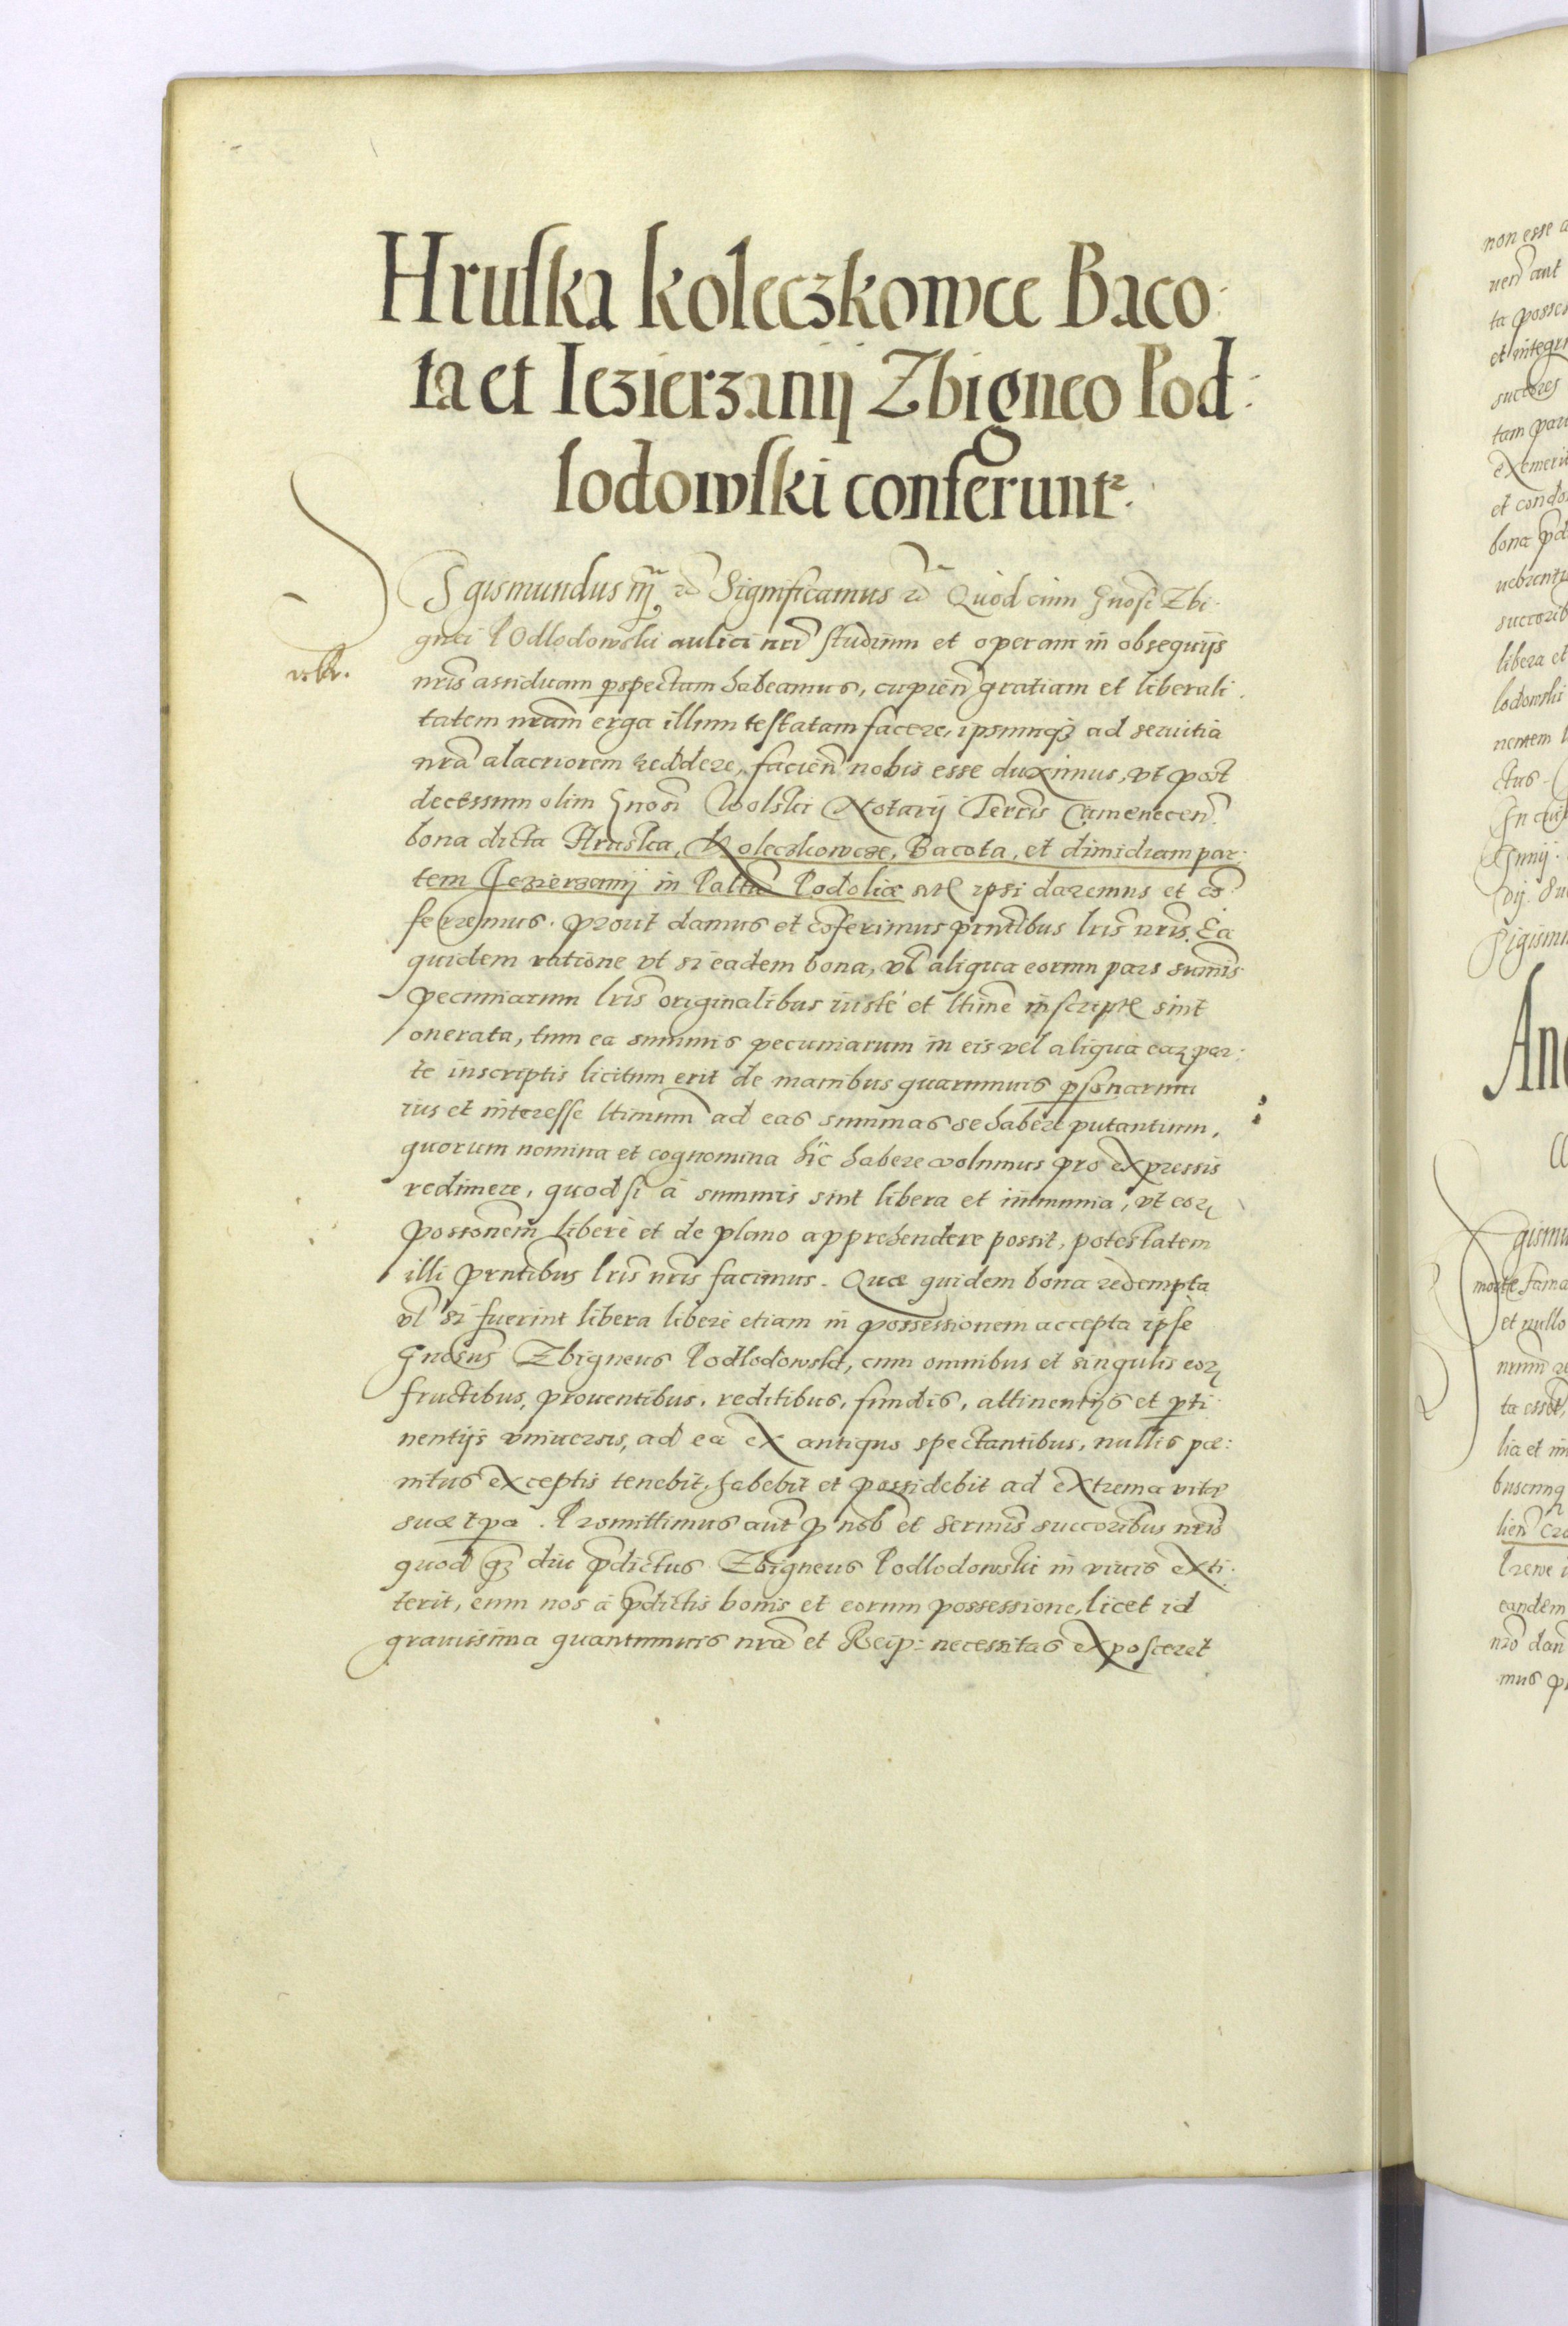 Hruska Koleczkowce Baco:
ta et Iezierzanij Zbigneo Pod:
lodowski conferunt.
Sigismundus III etc Significamus etc Quod cum Gnosi Zbi:
gnei Podlodowski aulici nri studium et operam in obsequijs
nris assiduam perspectam habeamus, cupien gratiam et liberali:
tatem nram erga illum testatam facere, ipsumq3 ad seruitia
nra alacriorem reddere, facien nobis esse duximus, vt post
decessum olim Gnosi Wolski Notarij Terris Camenecen.
bona dicta Hruska, Koleczkowcze, Bacota, et dimidiam par:
tem Jezierzanij in Paltu Podoliæ sita ipsi daremus et co:
ferremus. prout damus et coferimus prntibus lris nris. Ea
quidem ratione vt si eadem bona, vl aliqua eorum pars sumis
pecuniarum lris originalibus iuste et ltime inscriptis sint
onerata, tum ea summis pecuniarum in eis vel aliqua earum par:
te inscriptis licitum erit de manibus quarumuis personarum
ius et interesse ltimum ad eas summas se habere putantium,
quorum nomina et cognomina hic habere volumus pro expressis
redimere, quod si à summis sint libera et immunia, vt eor
possonem liberè et de plano apprehendere possit, potestatem
illi prntibus lris nris facimus. Quæ quidem bona redempta
vl si fuerint libera liberè etiam in possessionem accepta ipse
Gnosus Zbigneus Podlodowski, cum omnibus et singulis eor
fructibus, prouentibus, reditibus, fundis, attinentijs et perti:
nentijs vniuersis, ad ea ex antiquo spectantibus, nullis pæ:
nitus exceptis tenebit, habebit et possidebit ad extrema vitæ
suæ tpa. Promittimus aut pro nob et sermis succoribus nris
quod q3 diu prdictus Zbigneus Podlodowski in viuis exti:
terit, eum nos à prdictis bonis et eorum possessione, licet id
grauissima quantumuis nra et Reip: necessitas exposceret
non esse
aut
ta posses
et integr
succores
tam par
exemeri
et condo
bona
succorib
libera et
lodowski
nentem
ctus
In cui
Sigismu
And
gismu
morte fama
et nullo
ta esset,
lia et im
buscunq
eandem
nro dan
mus